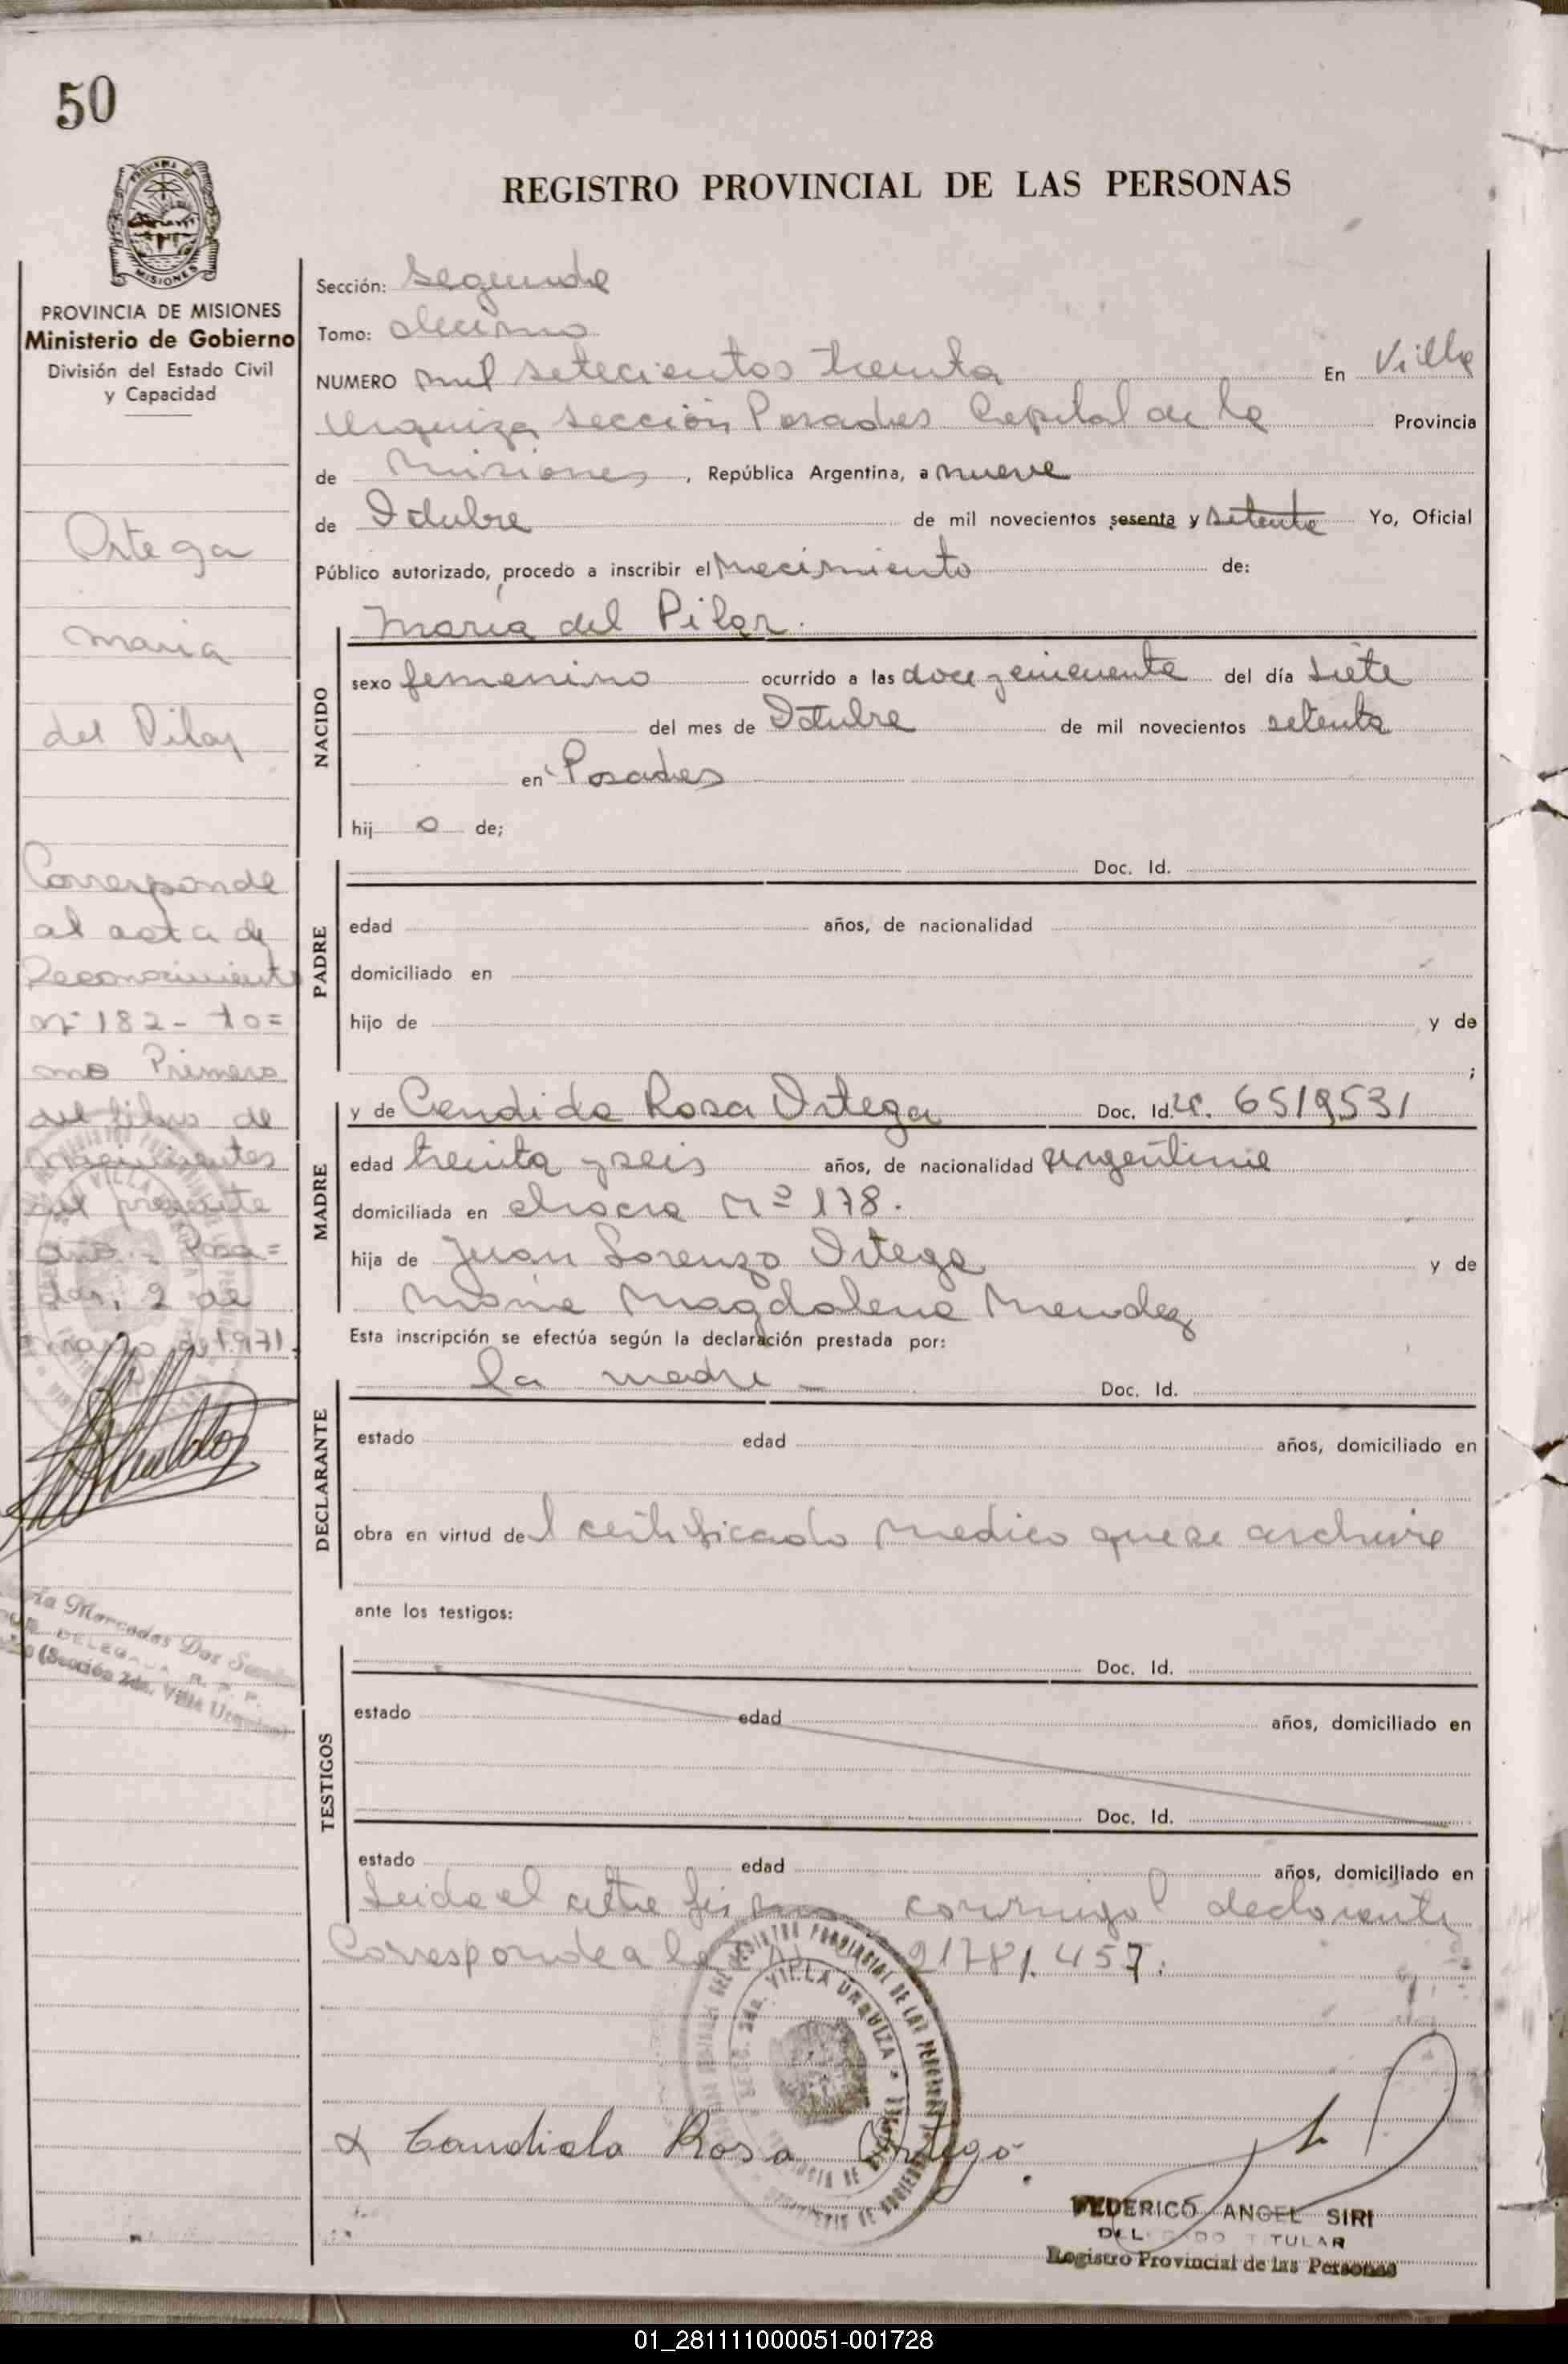 50
REGISTRO PROVINCIAL DE LAS PERSONAS
MISIONES
PROVINCIA DE MISIONES
Ministerio de Gobierno
División del Estado Civil
y Capacidad
Ortega
Maria
del Pilar
Corresponde
al acta de
Reconocimiento
Nº 182 - to=
mo Primero
del libro de
Nacimientos
del presente
año - Posa=
das, 2 de
de 1971.
Sección: Segunda
Tomo: decimo
NUMERO mil setecientos treinta En Villa
Urquiza sección Posadas Capital de la Provincia
de Misiones, República Argentina, a nueve
de Octubre de mil novecientos sesenta y setenta Yo, Oficial
Público autorizado, procedo a inscribir el Nacimiento de:
NACIDO
María del Pilar.
sexo femenino ocurrido a las doce y cincuenta del día siete
del mes de Octubre de mil novecientos setenta
en Posadas
hij o de;
PADRE
Doc. Id.
edad años, de nacionalidad
domiciliado en
hijo de y de
;
MADRE
y de Candida Rosa Ortega Doc. Id. LC. 6519531
edad treinta y seis años, de nacionalidad argentina
domiciliada en chacra Nº 178.
hija de Juan Lorenzo Ortega y de
María Magdalena Mendez
Esta inscripción se efectúa según la declaración prestada por:
DECLARANTE
la madre - Doc. Id.
estado edad años, domiciliado en
obra en virtud del certificado medico que se archiva
ante los testigos:
TESTIGOS
Doc. Id.
estado edad años, domiciliado en
Doc. Id.
estado edad años, domiciliado en
Leida el acta conmigo declarante
Corresponde a la 21781.457.
VILLA URQUIZA
x Candida Rosa Ortega
FEDERICO ANGEL SIRI
TITULAR
Registro Provincial de las Personas
(Sección 2da. Villa Urquiza)
01_281111000051-001728